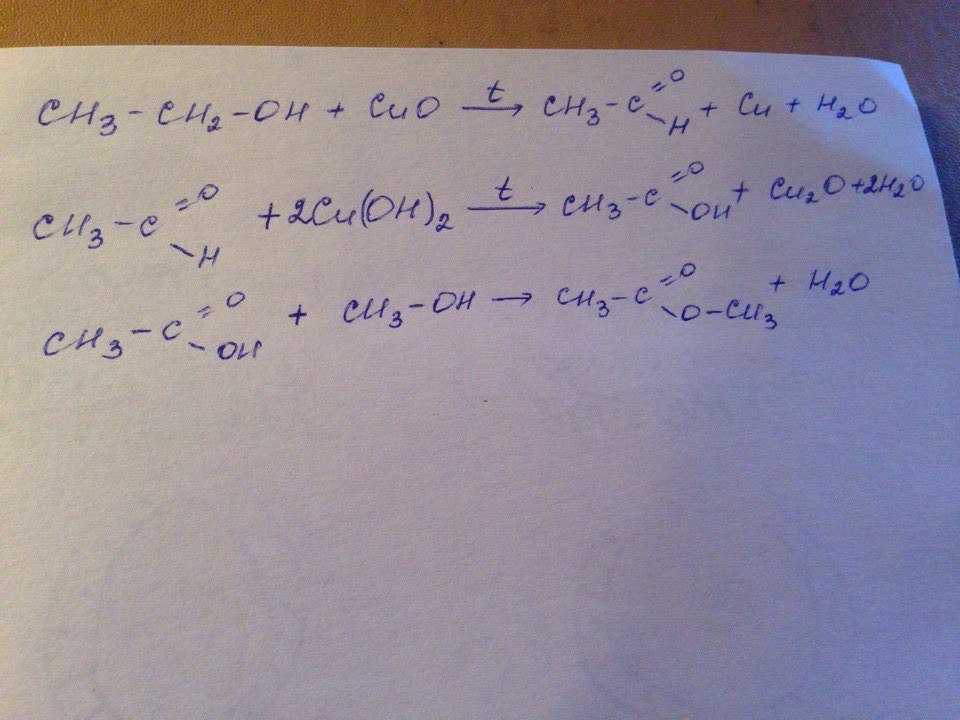 CH₃-CH₂-OH + CuO →(t) CH₃-C(=O)-H + Cu + H₂O
CH₃-C(=O)-H + 2Cu(OH)₂ →(t) CH₃-C(=O)-OH + Cu₂O + 2H₂O
CH₃-C(=O)-OH + CH₃-OH → CH₃-C(=O)-O-CH₃ + H₂O